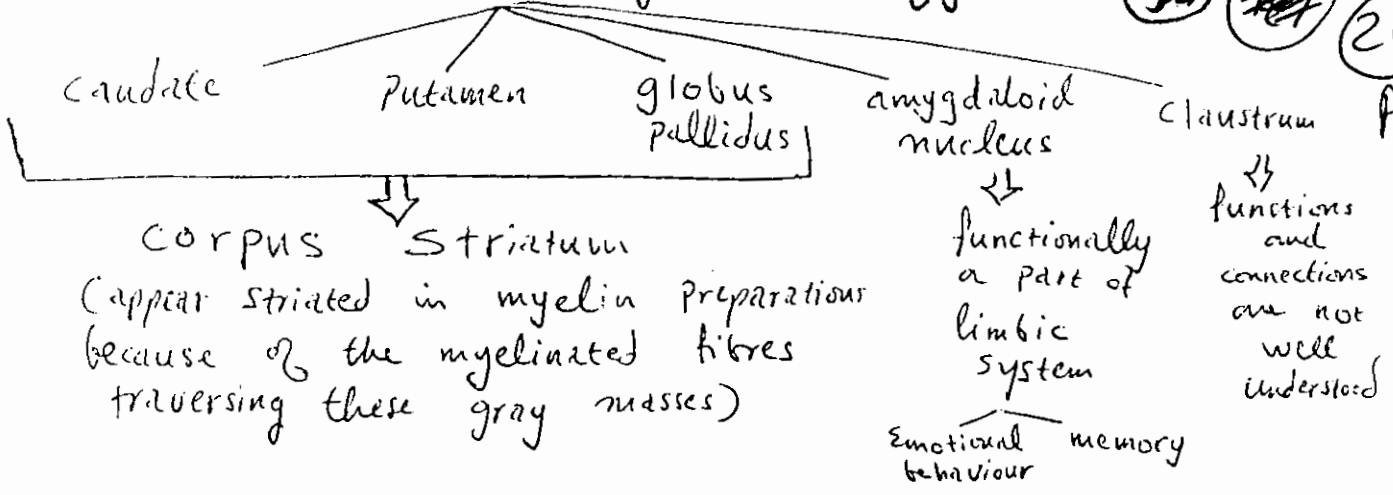 Caudate
Putamen
globus
pallidus
amygdaloid
nucleus
Claustrum
corpus striatum
(appear striated in myelin preparations
because of the myelinated fibres
traversing these gray masses)
functionally
a part of
limbic
system
Emotional
behaviour
memory
functions
and
connections
are not
well
understood